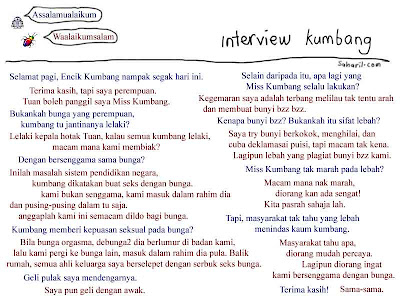 Assalamualaikum
Waalaikumsalam
interview kumbang
Saharil.com
Selamat pagi, Encik Kumbang nampak segak hari ini.
Terima kasih, tapi saya perempuan.
Tuan boleh panggil saya Miss Kumbang.
Bukankah bunga yang perempuan,
kumbang tu jantinanya lelaki?
Lelaki kepala hotak Tuan, kalau semua kumbang lelaki,
macam mana kami membiak?
Dengan bersenggama sama bunga?
Inilah masalah sistem pendidikan negara,
kumbang dikatakan buat seks dengan bunga.
kami bukan senggama, kami masuk dalam rahim dia
dan pusing-pusing dalam tu saja.
anggaplah kami ini semacam dildo bagi bunga.
Kumbang memberi kepuasan seksual pada bunga?
Bila bunga orgasma, debunga2 dia berlumur di badan kami,
lalu kami pergi ke bunga lain, masuk dalam rahim dia pula. Balik
rumah, semua ahli keluarga saya berselepet dengan serbuk seks bunga.
Geli pulak saya mendengarnya.
Saya pun geli dengan awak.
Selain daripada itu, apa lagi yang
Miss Kumbang selalu lakukan?
Kegemaran saya adalah terbang melilau tak tentu arah
dan membuat bunyi bzz bzz.
Kenapa bunyi bzz? Bukankah itu sifat lebah?
Saya try bunyi berkokok, menghilai, dan
cuba deklamasai puisi, tapi macam tak kena.
Lagipun lebah yang plagiat bunyi bzz kami.
Miss Kumbang tak marah pada lebah?
Macam mana nak marah,
diorang kan ada sengat!
Kita pasrah sahaja lah.
Tapi, masyarakat tak tahu yang lebah
menindas kaum kumbang.
Masyarakat tahu apa,
diorang mudah percaya.
Lagipun diorang ingat
kami bersenggama dengan bunga.
Terima kasih!
Sama-sama.